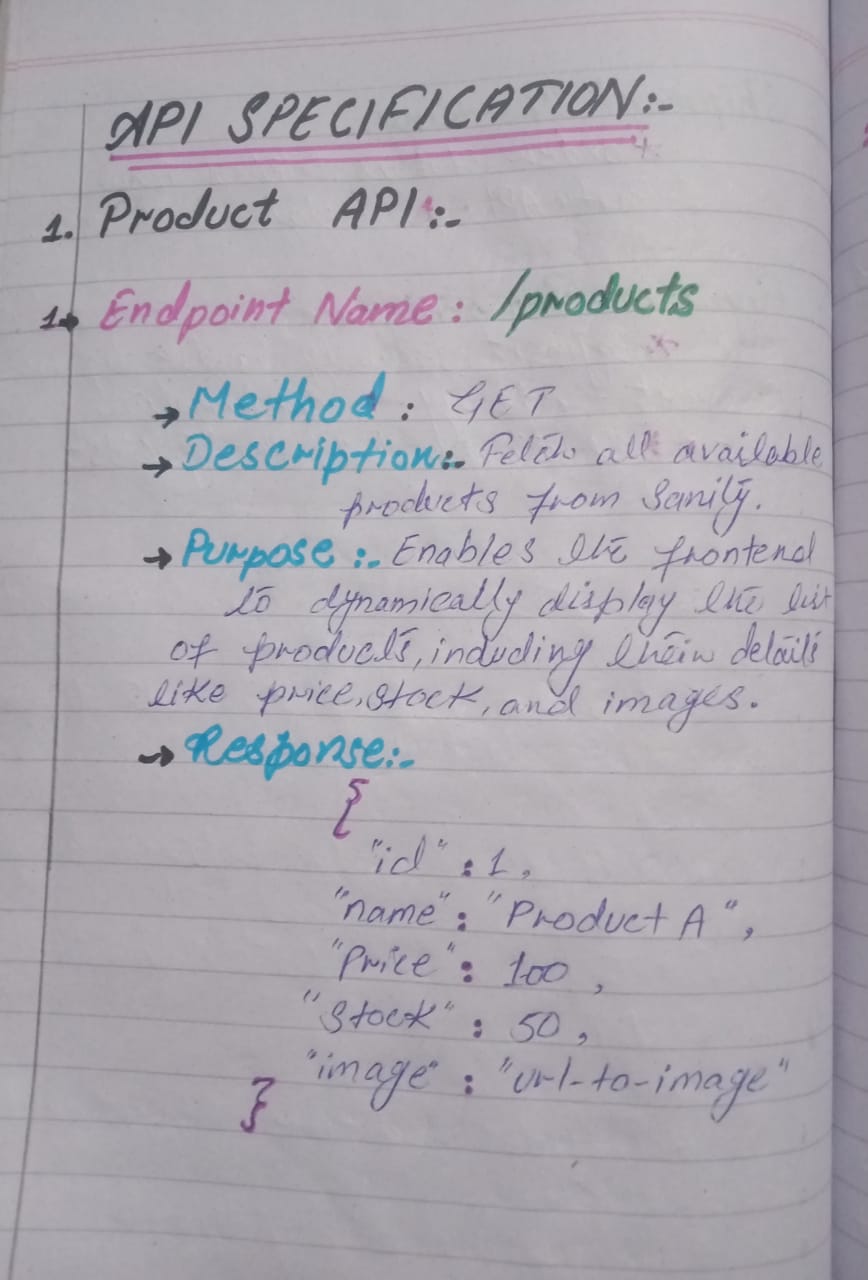 API SPECIFICATION:-
1. Product API:-
1→ Endpoint Name: /products
→ Method: GET
→ Description:- Fetch all available
products from Sanity.
→ Purpose:- Enables the frontend
to dynamically display the list
of products, including their details
like price, stock, and images.
→ Response:-
{
"id": 1,
"name": "Product A",
"Price": 100,
"Stock": 50,
"image": "url-to-image"
}